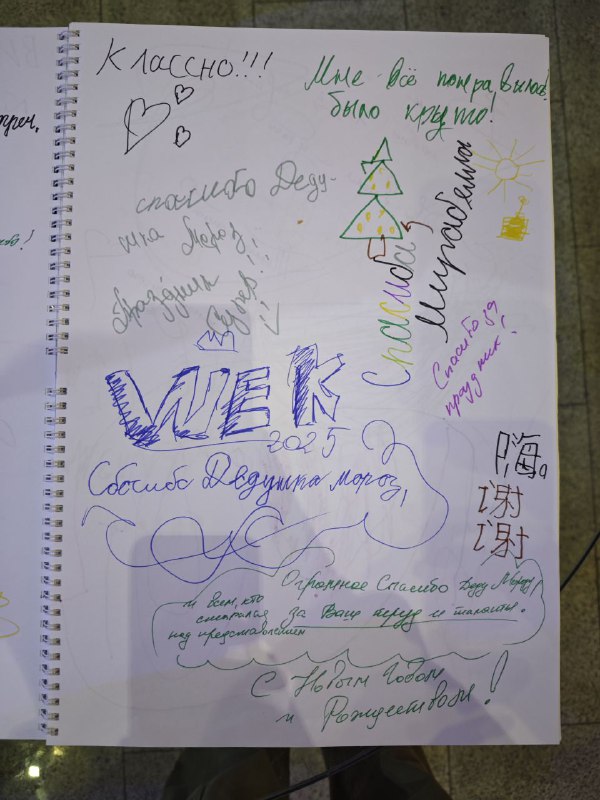 Классно!!!
Мне всё понравилось!
было круто!
спасибо Деду-
шка Мороз,
Праздник
Супер!!
Спасибо
Мирабелла
Спасибо за
праздник!
WEK
2025
Сбасиба Дедушка мороз,
嗨。
谢
谢
Огромное Спасибо Деду Морозу
и всем, кто
старался за Ваш труд и таланты.
над представлением
С Новым Годом
и Рождеством!
треч,